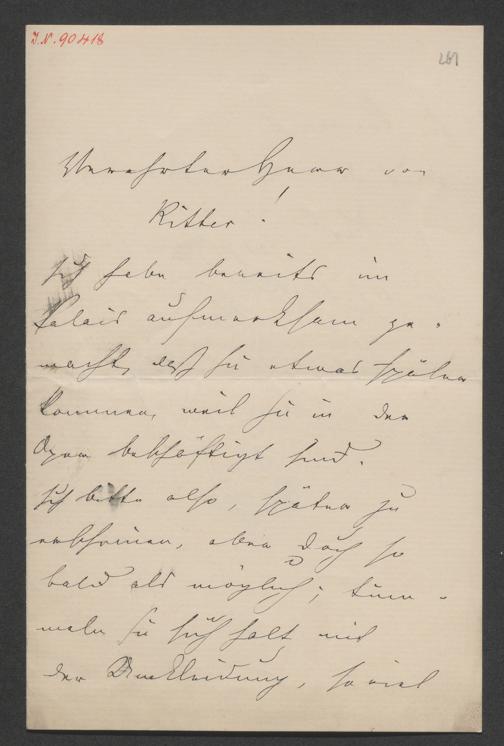 I.N. 90418
Verehrter Herr von
Ritter!
Ich habe bereits im
Palais aufmerksam ge-
macht, daß Sie etwas später
kommen, weil Sie in der
Oper beschäftigt sind.
Ich bitte also, später zu
erscheinen, aber doch so
bald als möglich; tum-
meln Sie sich halt mit
der Umkleidung, soviel